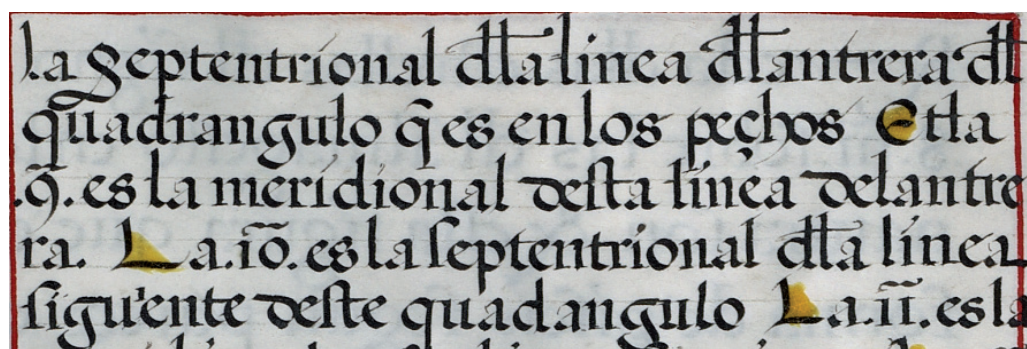 la septentrional dłła linea dłłantrera dłł
quadrangulo q̃ es en los pechos Et la
.9. es la meridional desta linea delantre
ra. La .10. es la septentrional dłła linea
siguente deste quadangulo La .11. es la